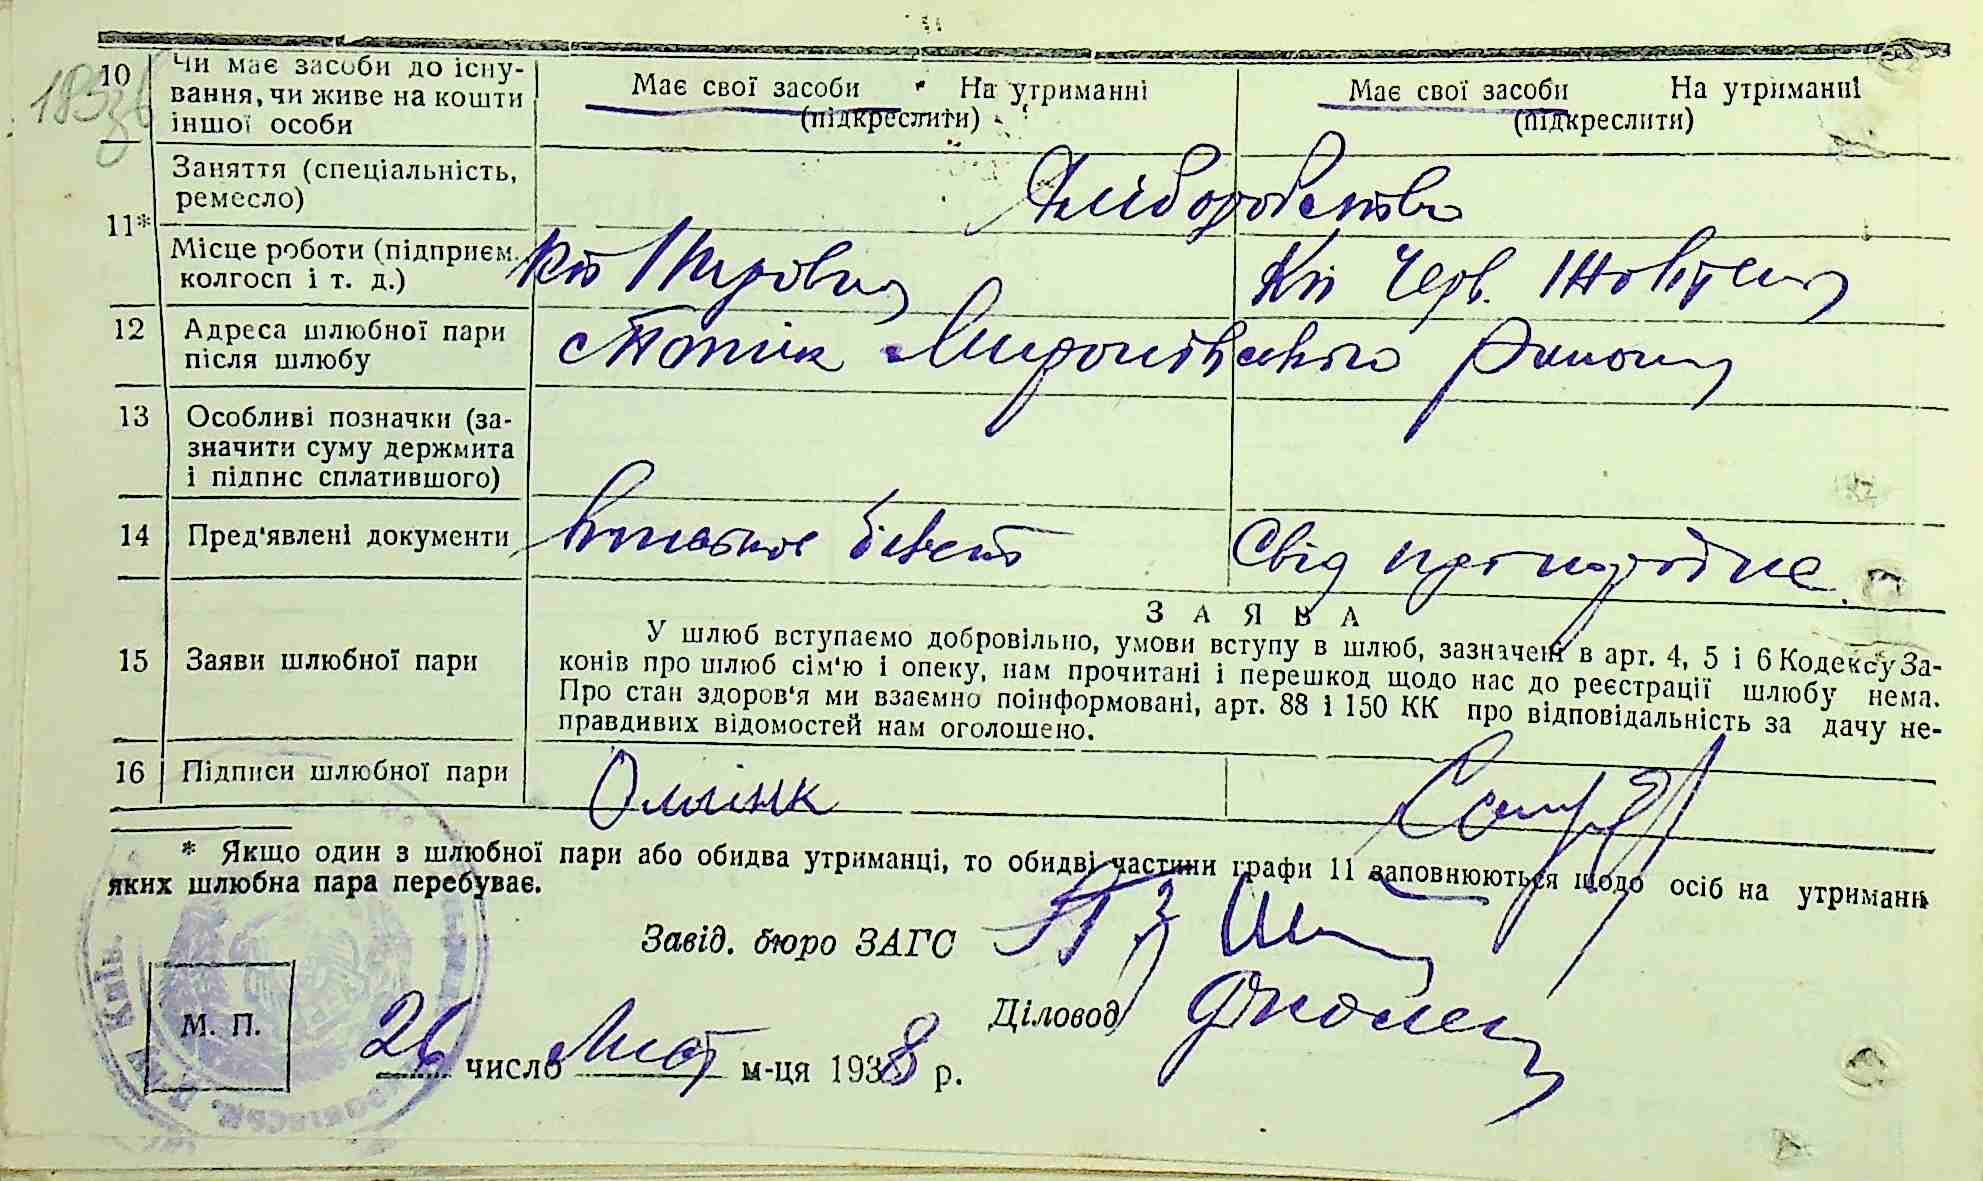 10 Чи має засоби до існу-
вання, чи живе на кошти
іншої особи
Має свої засоби На утриманні
(підкреслити)
Має свої засоби На утриманні
(підкреслити)
11* Заняття (спеціальність,
ремесло)
Хліборобство
Місце роботи (підприєм.
колгосп і т. д.)
Кп Черв. Жовтень
12 Адреса шлюбної пари
після шлюбу
Миронівського району
13 Особливі позначки (за-
значити суму держмита
і підпис сплатившого)
14 Пред'явлені документи
білет
Свід про народже
15 Заяви шлюбної пари
ЗАЯВА
У шлюб вступаємо добровільно, умови вступу в шлюб, зазначені в арт. 4, 5 і 6 Кодексу За-
конів про шлюб сім'ю і опеку, нам прочитані і перешкод щодо нас до реєстрації шлюбу нема.
Про стан здоров'я ми взаємно поінформовані, арт. 88 і 150 КК про відповідальність за дачу не-
правдивих відомостей нам оголошено.
16 Підписи шлюбної пари
* Якщо один з шлюбної пари або обидва утриманці, то обидві частини графи 11 заповнюються щодо осіб на утриманн
яких шлюбна пара перебуває.
Завід. бюро ЗАГС
Діловод
М. П.
26 число Лист м-ця 1938 р.